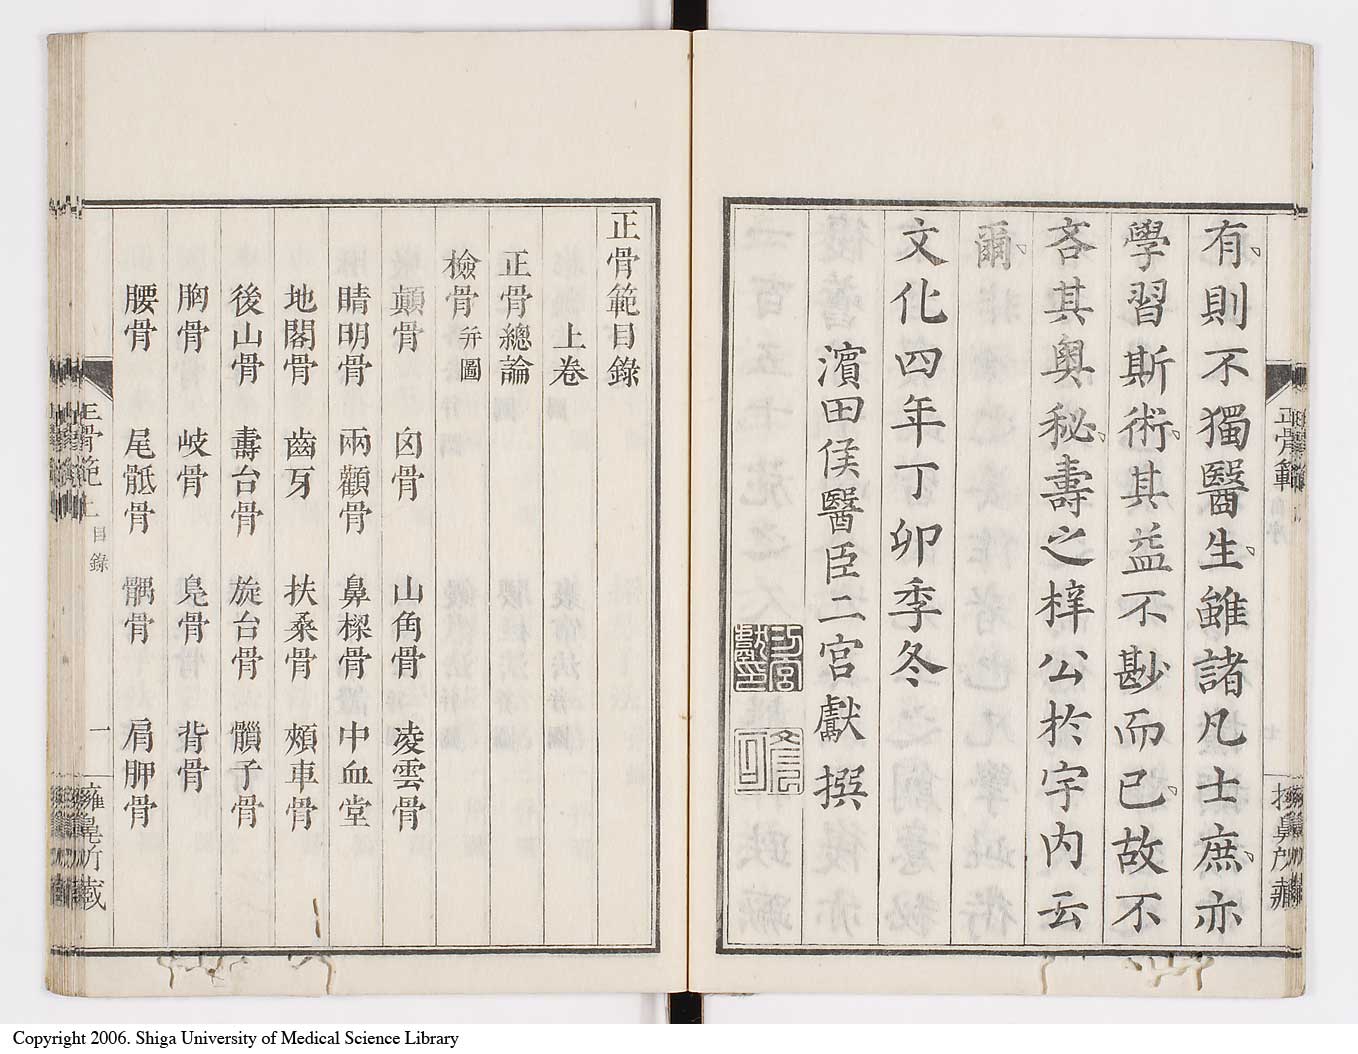 有則不獨醫生雖諸凡士庶亦
學習斯術其益不尠而已故不
吝其奧秘壽之梓公於宇内云
爾
文化四年丁卯季冬
濱田侯醫臣二宮獻撰
正骨範
正骨範目錄
上卷
正骨總論
檢骨 并圖
顛骨 囟骨 山角骨 凌雲骨
睛明骨 兩顴骨 鼻樑骨 中血堂
地閣骨 齒牙 扶桑骨 頰車骨
後山骨 壽台骨 旋台骨 顖子骨
胸骨 岐骨 鳬骨 背骨
腰骨 尾骶骨 髃骨 肩胛骨
正骨範 上 目錄 一
Copyright 2006. Shiga University of Medical Science Library